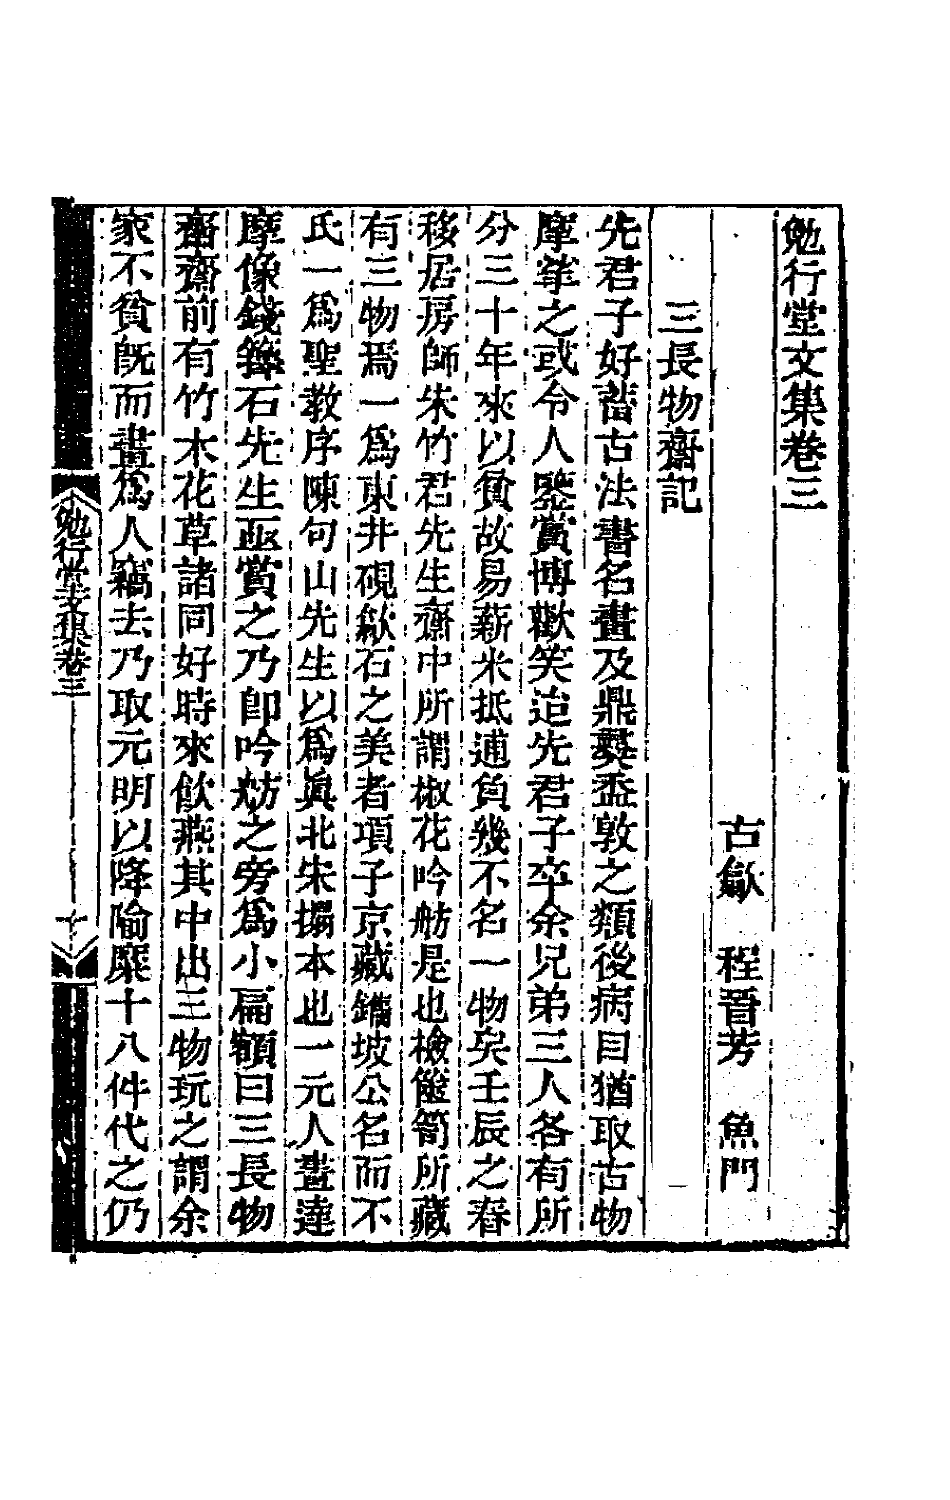 勉行堂文集卷三
古歙 程晉芳 魚門
三長物齋記
先君子好蓄古法書名畫及鼎彝盉敦之類後病目猶取古物
摩挲之或令人鑒賞博歡笑迨先君子卒余兄弟三人各有所
分三十年來以貧故易薪米抵逋負幾不名一物矣壬辰之春
移居房師朱竹君先生齋中所謂椒花吟舫是也檢篋笥所藏
有三物焉一爲東井硯歙石之美者項子京藏鐫坡公名而不
氏一爲聖教序陳句山先生以爲眞北朱搨本也一元人畫達
摩像錢籜石先生亟賞之乃卽吟舫之旁爲小扁額曰三長物
齋齋前有竹木花草諸同好時來飲燕其中出三物玩之謂余
家不貧旣而畫爲人竊去乃取元明以降隃糜十八件代之仍
勉行堂文集卷三
一